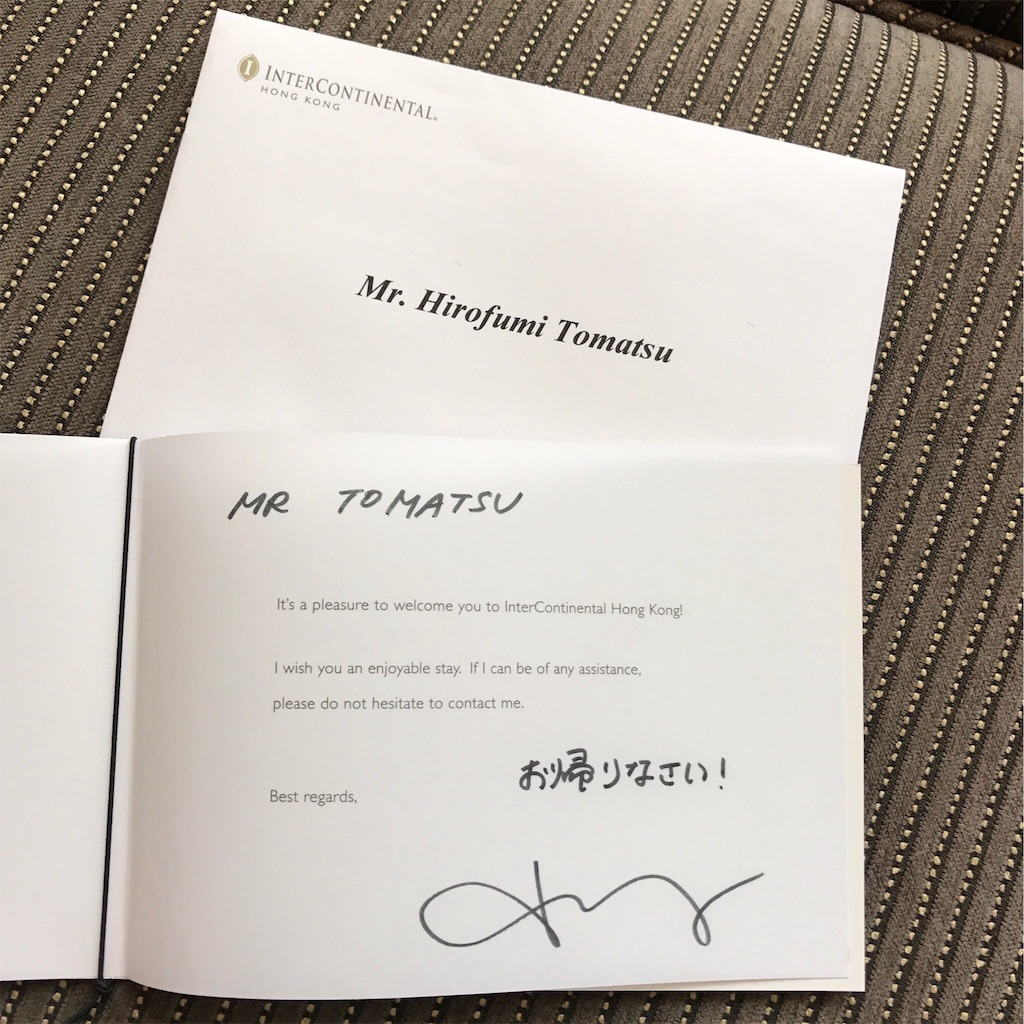 INTERCONTINENTAL.
HONG KONG
Mr. Hirofumi Tomatsu
MR TOMATSU
It's a pleasure to welcome you to InterContinental Hong Kong!
I wish you an enjoyable stay. If I can be of any assistance,
please do not hesitate to contact me.
お帰りなさい!
Best regards,